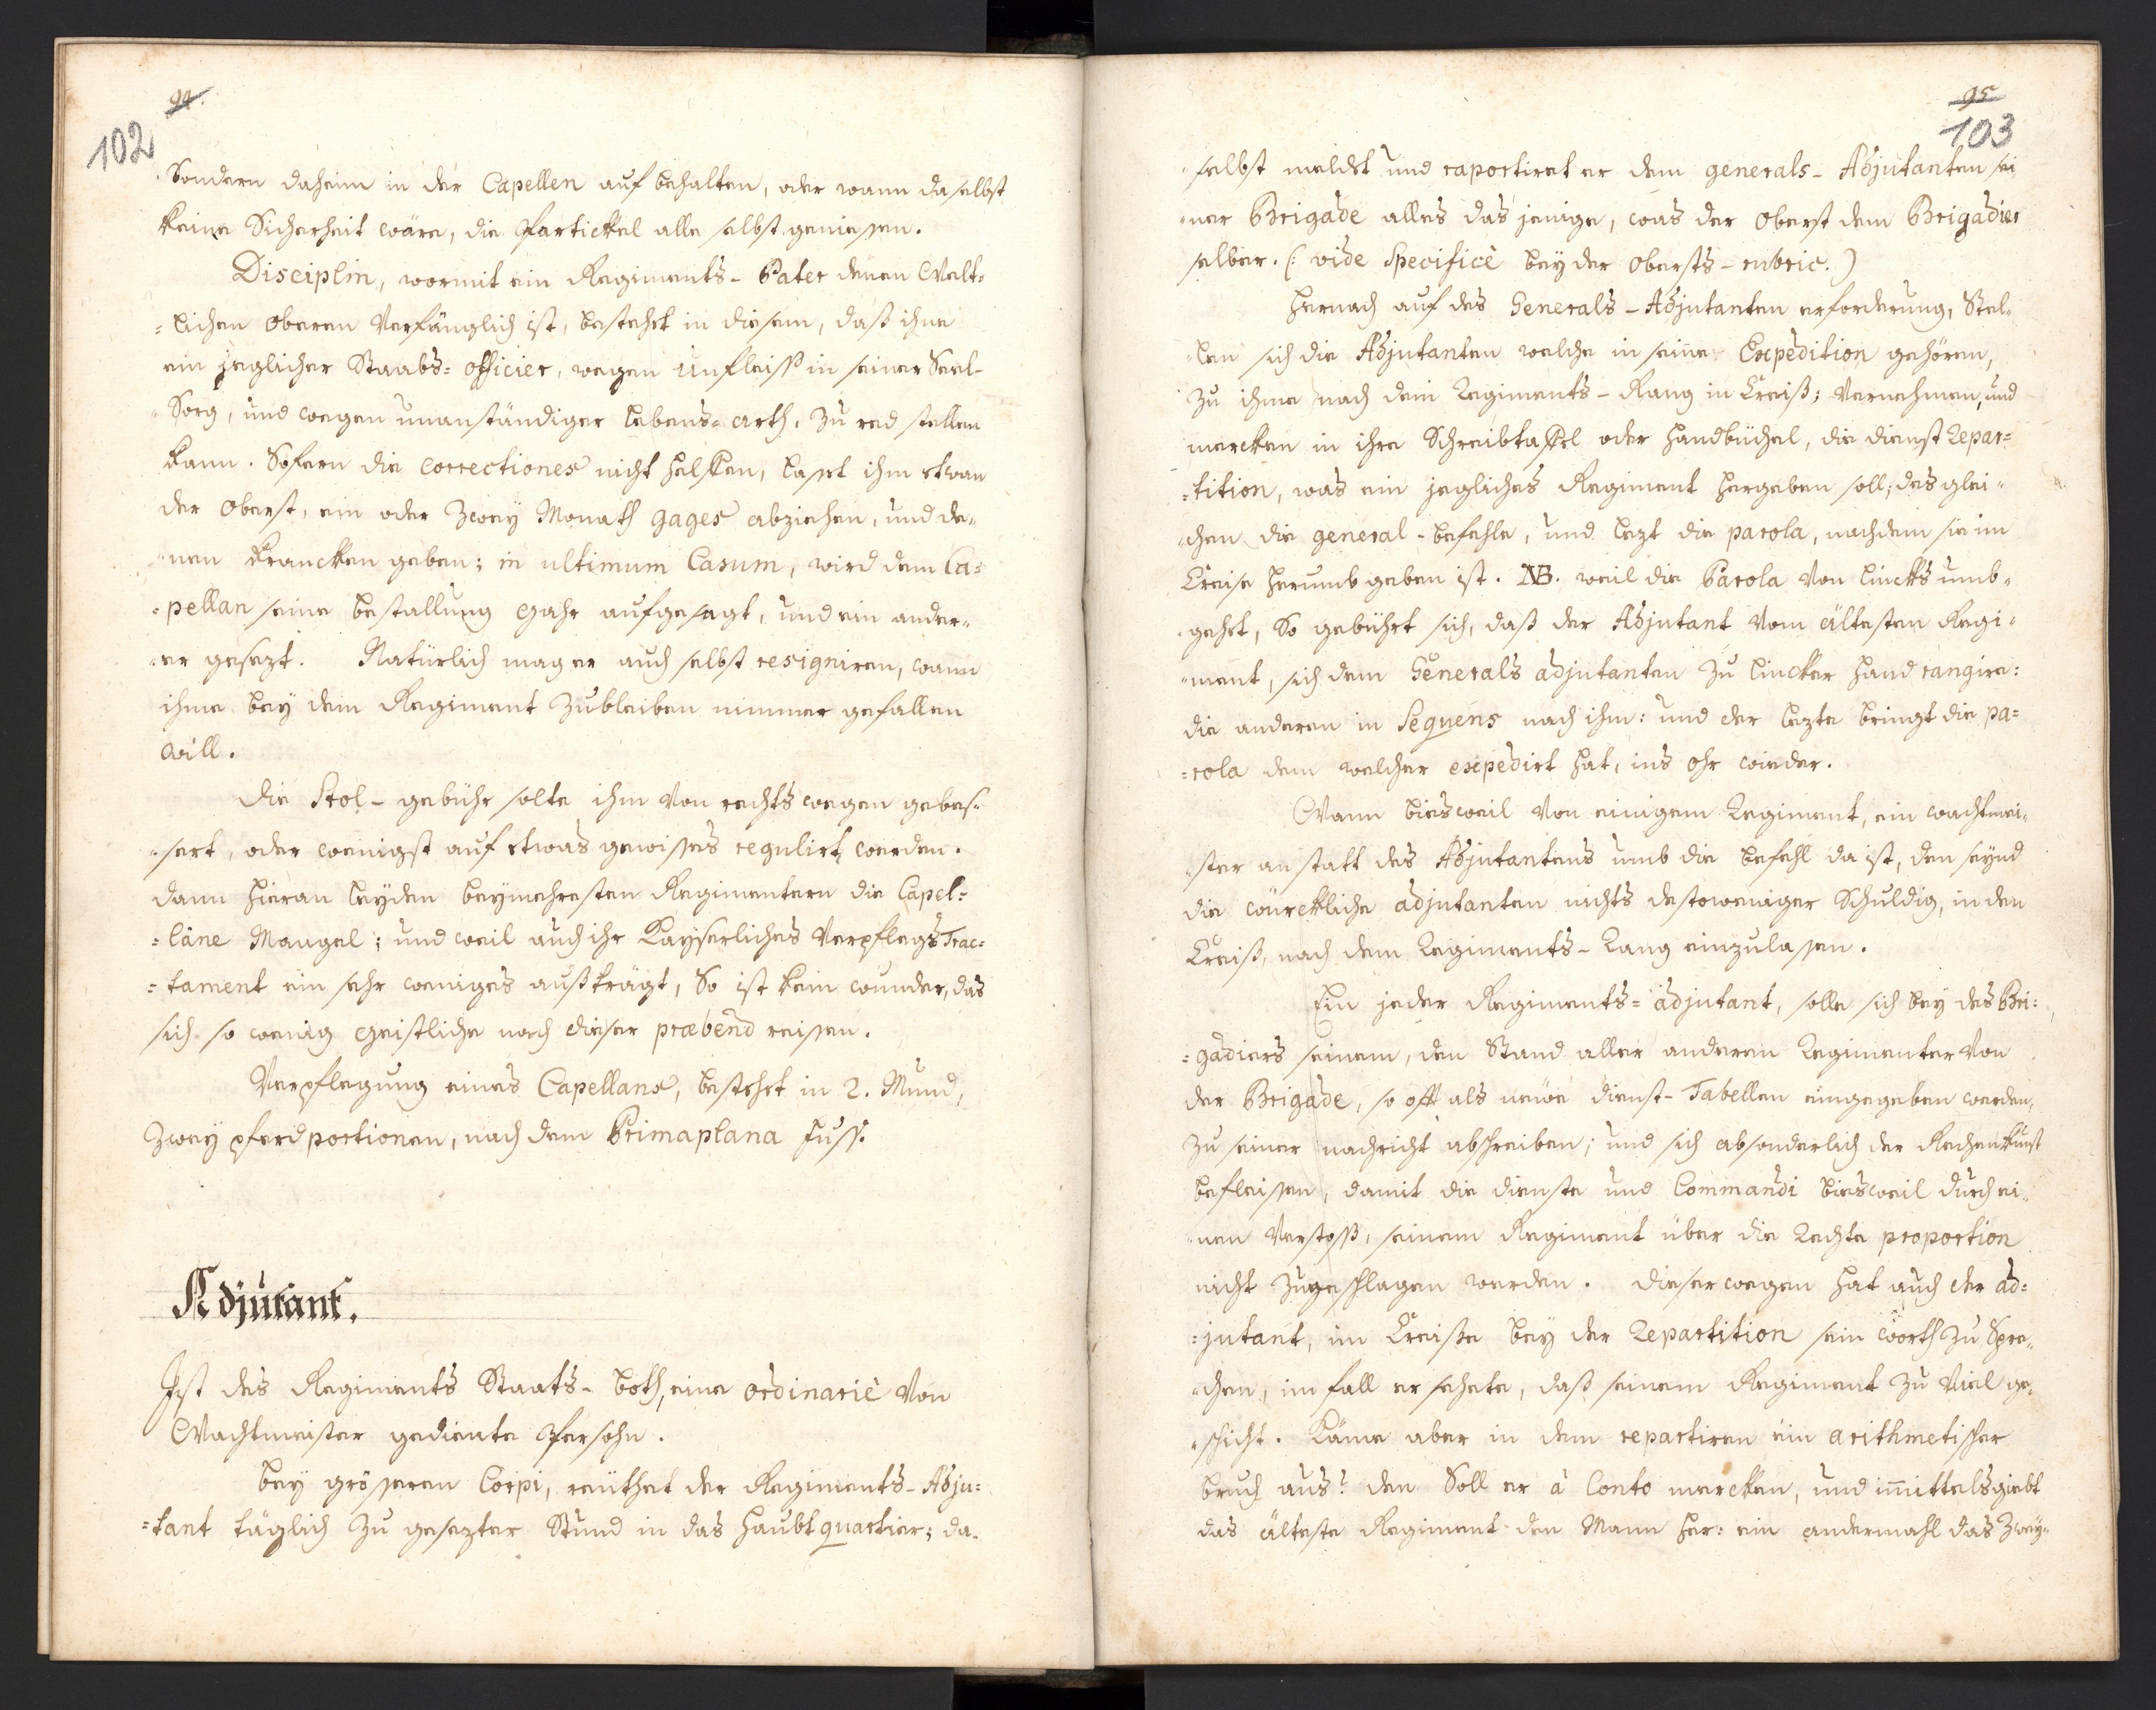 94.
102
Sondern daheim in der Capellen auf behalten, oder wann daselbst
keine Sicherheit wäre, die Partickel alle selbst geniessen.
Disciplin, wormit ein Regiments- Pater denen Welt-
=lichen Oberen Verfänglich ist, bestehet in diesem, daß ihne
ein jeglicher Staabs= Officier, wegen Unfleiß in seiner Seel-
Sorg, und wegen unanständiger lebens-arth, zu red stellen
kann. Sofern die correctiones nicht helffen, lasset ihm etwan
der Oberst, ein oder Zwey Monath gages abziehen, und de-
nen Krancken geben; in ultimum Casum, wird dem Ca=
=pellan seine bestallung gahr aufgesagt, und ein ander-
er gesezt. Natürlich mag er auch selbst resigniren, wann
ihme bey dem Regiment Zubleiben nimmer gefallen
will.
Die Stol- gebühr solte ihm von rechts wegen gebes-
sert, oder wenigst auf etwas gewisses regulirt werden.
dann hieran leyden beymehresten Regimentern die Capel=
=läne Mangel; und weil auch ihr Kayserliches Verpflegs Trac=
=tament ein sehr weniges außträgt, So ist kein wunder, das
sich so wenig geistliche nach dieser præbend reissen.
Verpflegung eines Capellans, bestehet in 2. Mund,
Zwey pferd portionen, nach dem Primaplana Fuss.
Adjutant.
Ist des Regiments Staats- both, eine ordinariè Von
Wachtmeister gediente Persohn.
bey grösseren Corpi, reuthet der Regiments- Adju=
=tant täglich zu gesezter Stund in das Haubtquartier; da-
95
103
selbst meldet und raportiret er dem generals- Adjutanten sei
ner Brigade alles das jenige, was der Oberst dem Brigadier
selber. (: vide Specificè bey der Obersts- rubric.)
Hernach auf des Generals- Adjutanten erforderung, Stel-
len sich die Adjutanten welche in seine Expedition gehören,
zu ihme nach dem Regiments- Rang in Creiß; Vernehmen, und
mercken in ihre Schreibtaffel oder Handbüchel, die dienst Repar=
=tition, was ein jegliches Regiment hergeben soll; des glei-
chen die general-befehle, und lezt die parola, nachdem sie im
Creise herumb geben ist. NB. weil die Parola Von lincks umb-
gehet, So gebührt sich, daß der Adjutant Vom ältesten Regi-
ment, sich dem Generals adjutanten zu lincker Hand rangire:
die anderen in Sequens nach ihm: und der lezte bringt die pa=
=rola dem welcher expedirt hat, ins ohr wieder.
Wann bisweil von einigem Regiment, ein wachtmei-
ster anstatt des Adjutantens umb die befehl da ist, den seynd
die würckliche adjutanten nichts destoweniger Schuldig, in den
Creiß, nach dem Regiments- Rang einzulassen.
Ein jeder Regiments= adjutant, solle sich bey des Bri=
=gadiers seinem, den Stand aller anderen Regimenter Von
der Brigade, so offt als newe dienst- Tabellen eingegeben werden,
zu seiner nachricht abschreiben; und sich absonderlich der Rechenkunst
befleissen, damit die dienste und Commandi bisweil durch ei-
nen Verstoß, seinem Regiment über die Rechte proportion
nicht zugeschlagen werden. dieserwegen hat auch der ad=
=jutant, im Creiße bey der Repartition sein worth zu Spre-
chen, im fall er sehete, daß seinem Regiment zu Viel ge-
schicht. Käme aber in dem repartiren ein arithmetischer
bruch aus? den Soll er à Conto mercken, und immittels giebt
das älteste Regiment den Mann her: ein andermahl das Zwey-